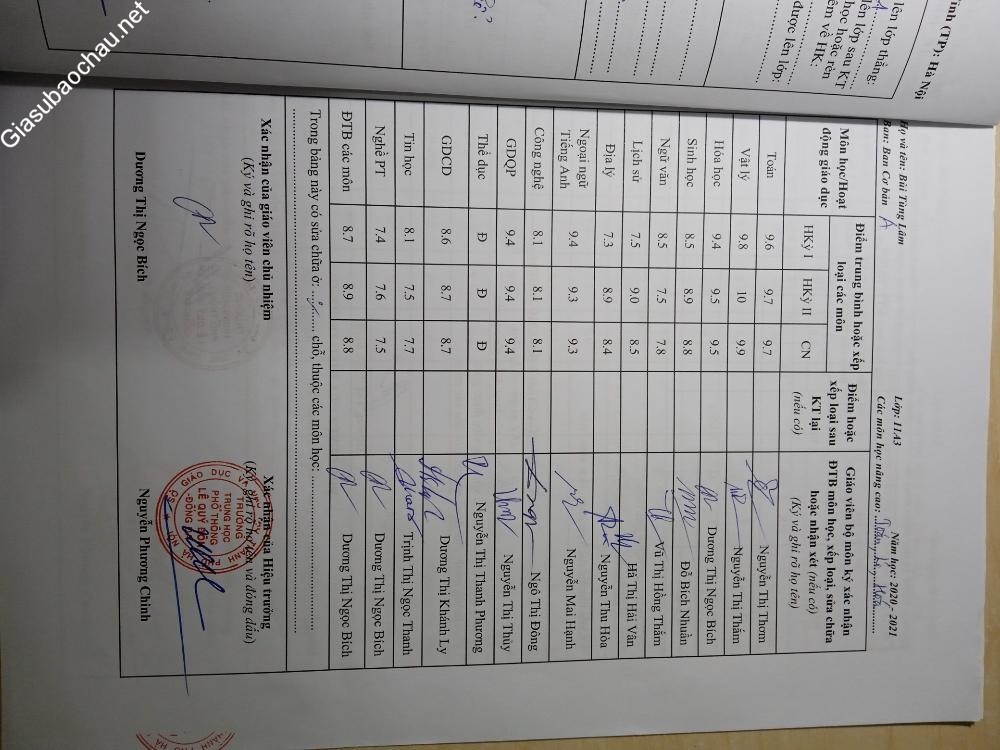 Giasubaochau.net
ỉnh (TP): Hà Nội
lên lớp thẳng:
lên lớp sau KT
học hoặc rèn
êm về HK:
được lên lớp:
Họ và tên: Bùi Tùng Lâm
Lớp: 11A3
Năm học: 2020 - 2021
Ban: Ban Cơ bản A
Các môn học nâng cao:
Môn học/Hoạt động giáo dục
Điểm trung bình hoặc xếp loại các môn
Điểm hoặc xếp loại sau KT lại (nếu có)
Giáo viên bộ môn ký xác nhận ĐTB môn học, xếp loại, sửa chữa hoặc nhận xét (nếu có) (Ký và ghi rõ họ tên)
HKỳ I HKỳ II CN
Toán 9.6 9.7 9.7 Nguyễn Thị Thơm
Vật lý 9.8 10 9.9 Nguyễn Thị Thắm
Hóa học 9.4 9.5 9.5 Dương Thị Ngọc Bích
Sinh học 8.5 8.9 8.8 Đỗ Bích Nhuần
Ngữ văn 8.5 7.5 7.8 Vũ Thị Hồng Thắm
Lịch sử 7.5 9.0 8.5 Hà Thị Hải Vân
Địa lý 7.3 8.9 8.4 Nguyễn Thu Hòa
Ngoại ngữ Tiếng Anh 9.4 9.3 9.3 Nguyễn Mai Hạnh
Công nghệ 8.1 8.1 8.1 Ngô Thị Đông
GDQP 9.4 9.4 9.4 Nguyễn Thị Thúy
Thể dục Đ Đ Đ Nguyễn Thị Thanh Phương
GDCD 8.6 8.7 8.7 Dương Thị Khánh Ly
Tin học 8.1 7.5 7.7 Trịnh Thị Ngọc Thanh
Nghề PT 7.4 7.6 7.5 Dương Thị Ngọc Bích
ĐTB các môn 8.7 8.9 8.8 Dương Thị Ngọc Bích
Trong bảng này có sửa chữa ở: ........ chỗ, thuộc các môn học: ........
Xác nhận của giáo viên chủ nhiệm
(Ký và ghi rõ họ tên)
Dương Thị Ngọc Bích
Xác nhận của Hiệu trưởng
(Ký, ghi rõ họ tên và đóng dấu)
TRƯỜNG
TRUNG HỌC
PHỔ THÔNG
LÊ QUÝ ĐÔN
Nguyễn Phương Chinh